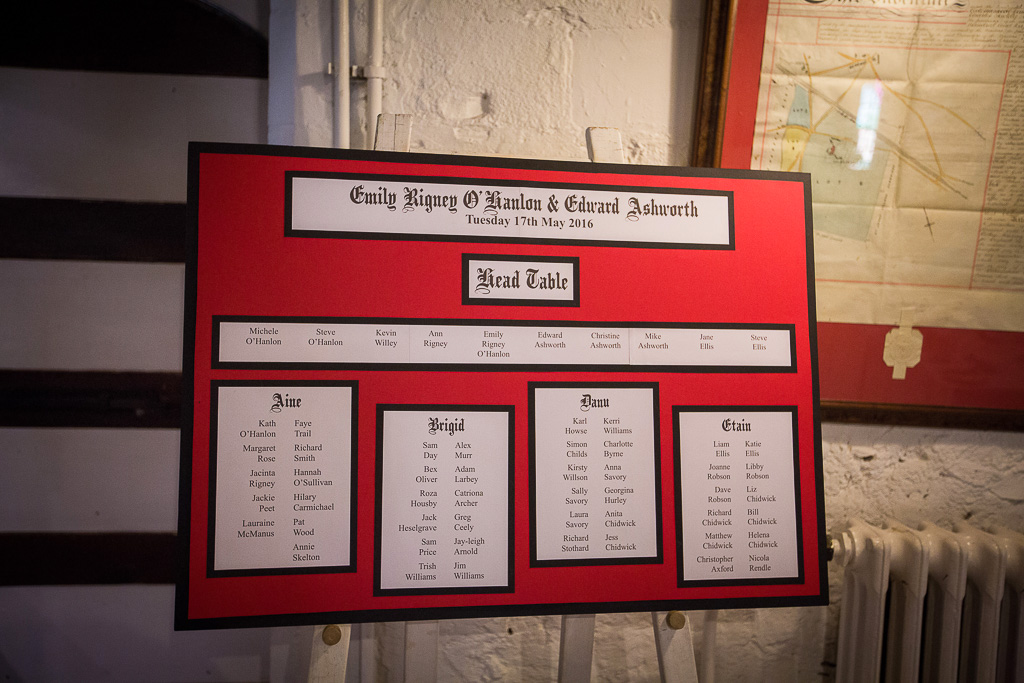 Emily Rigney O'Hanlon & Edward Ashworth
Tuesday 17th May 2016
Head Table
Michele O'Hanlon
Steve O'Hanlon
Kevin Willey
Ann Rigney
Emily Rigney O'Hanlon
Edward Ashworth
Christine Ashworth
Mike Ashworth
Jane Ellis
Steve Ellis
Aine
Kath Faye
O'Hanlon Trail
Margaret Richard
Rose Smith
Jacinta Hannah
Rigney O'Sullivan
Jackie Hilary
Peet Carmichael
Lauraine Pat
McManus Wood
Annie
Skelton
Brigid
Sam Alex
Day Murr
Bex Adam
Oliver Larbey
Roza Catriona
Housby Archer
Jack Greg
Heselgrave Ceely
Sam Jay-leigh
Price Arnold
Trish Jim
Williams Williams
Danu
Karl Kerri
Howse Williams
Simon Charlotte
Childs Byrne
Kirsty Anna
Willson Savory
Sally Georgina
Savory Hurley
Laura Anita
Savory Chidwick
Richard Jess
Stothard Chidwick
Etain
Liam Katie
Ellis Ellis
Joanne Libby
Robson Robson
Dave Liz
Robson Chidwick
Richard Bill
Chidwick Chidwick
Matthew Helena
Chidwick Chidwick
Christopher Nicola
Axford Rendle